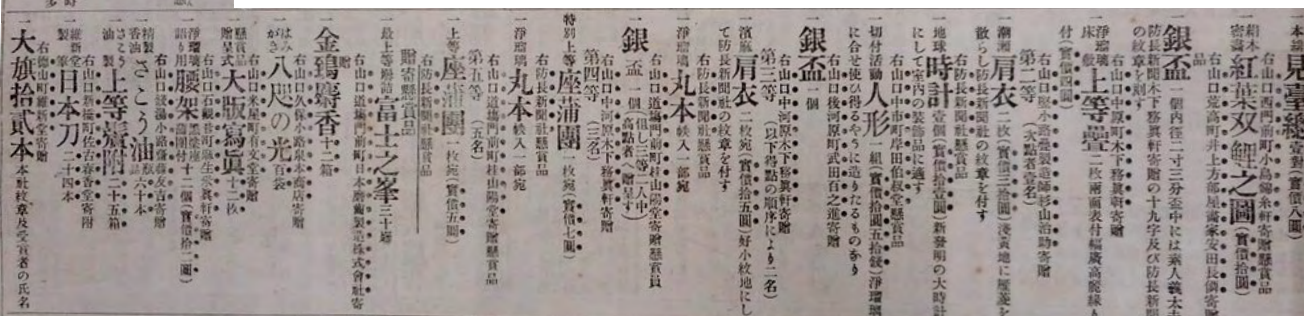 見臺
右山口西門前町小島錦糸軒寄贈懸賞品
絹本密畵 紅葉双鯉之圖（實價拾圓）
右山口荒高町井上方部屋畵家安田長僑寄贈品
銀盃 一個內徑二寸三分盃中には素人義太夫
防長新聞木下務眞軒寄贈の十九字及び防長新聞
の紋章を刻す
右山口中河原町木下務眞軒寄贈
淨瑠璃床 上等疊 二枚兩面表付幅廣高麗緣人
付（實價圓）
第二等（次點者壹名）
右山口堅小路疊製造師杉山治助寄贈
一潮湖 肩衣 二枚（實價三拾圓）淺黃地に雁菱を
散らし防長新聞社の紋章を付す
右防長新聞社懸賞品
一地球 時計 壹個（實價拾壹圓）新發明の大時計
にして室內の裝飾品に適す
右山口中市町岸田伯叔堂懸賞品
一切付活動 人形 一組（實價拾圓五拾錢）淨瑠璃
に合せ使ひ得るやうに造りたるものなり
右山口後河原町武田百之進寄贈
銀盃 一個
右山口中河原木下務眞軒寄贈
第三等（以下得點の順序により二名）
一濱麻 肩衣 二枚宛（實價拾五圓）好小紋地にし
て防長新聞社の紋章を付す
右防長新聞社懸賞品
一淨瑠璃 丸本 帙入一部宛
右山口道塲門前町桂山陽堂寄贈懸賞員
一銀盃 一個（但し三等二人中高點者へ贈與す）
右山口中河原木下務眞軒寄贈
第四等（三名）
特別上等 座蒲團 一枚宛（實價七圓）
右防長新聞社懸賞品
一淨瑠璃 丸本 帙入一部宛
右山口道塲門前町桂山陽堂寄贈懸賞品
第五等（五名）
一上等 座蒲團 一枚宛（實價五圓）
右防長新聞社懸賞品
贈寄懸賞品
一最上等齒磨 富士之峯 三十壜
右山口道塲門前町日本齒磨製造株式會社寄贈
一金鵄麝香 十二箱
右山口米屋町有文堂寄贈
一はみがき 八咫の光 百袋
右山口久保小路泉本商店寄贈
懸賞品贈呈式 大版寫眞 十二枚
右山口石觀音町麻生眞軒寄贈
一淨瑠璃語り用 腰架 黑塗座蒲團付十二個（實價拾二圓）
右山口諸願小路齋藤友吉寄贈
一精製香油 さこう油 瓶六十本
さこう油製 上等鬢附 二十五箱
右山口新橋町佐古春香堂寄附
一維新堂筆 日本刀 二十四本
右德山町維新堂寄贈
一大旗拾貳本 本社紋章及受賞者の氏名